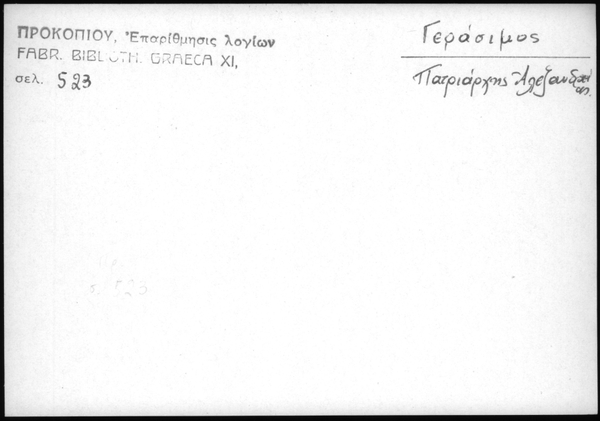 ΠΡΟΚΟΠΙΟΥ, Ἐπαρίθμησις λογίων
FABR. BIBLIOTH. GRAECA XI,
σελ. 523
Γεράσιμος
Πατριάρχης Ἀλεξανδρείας.